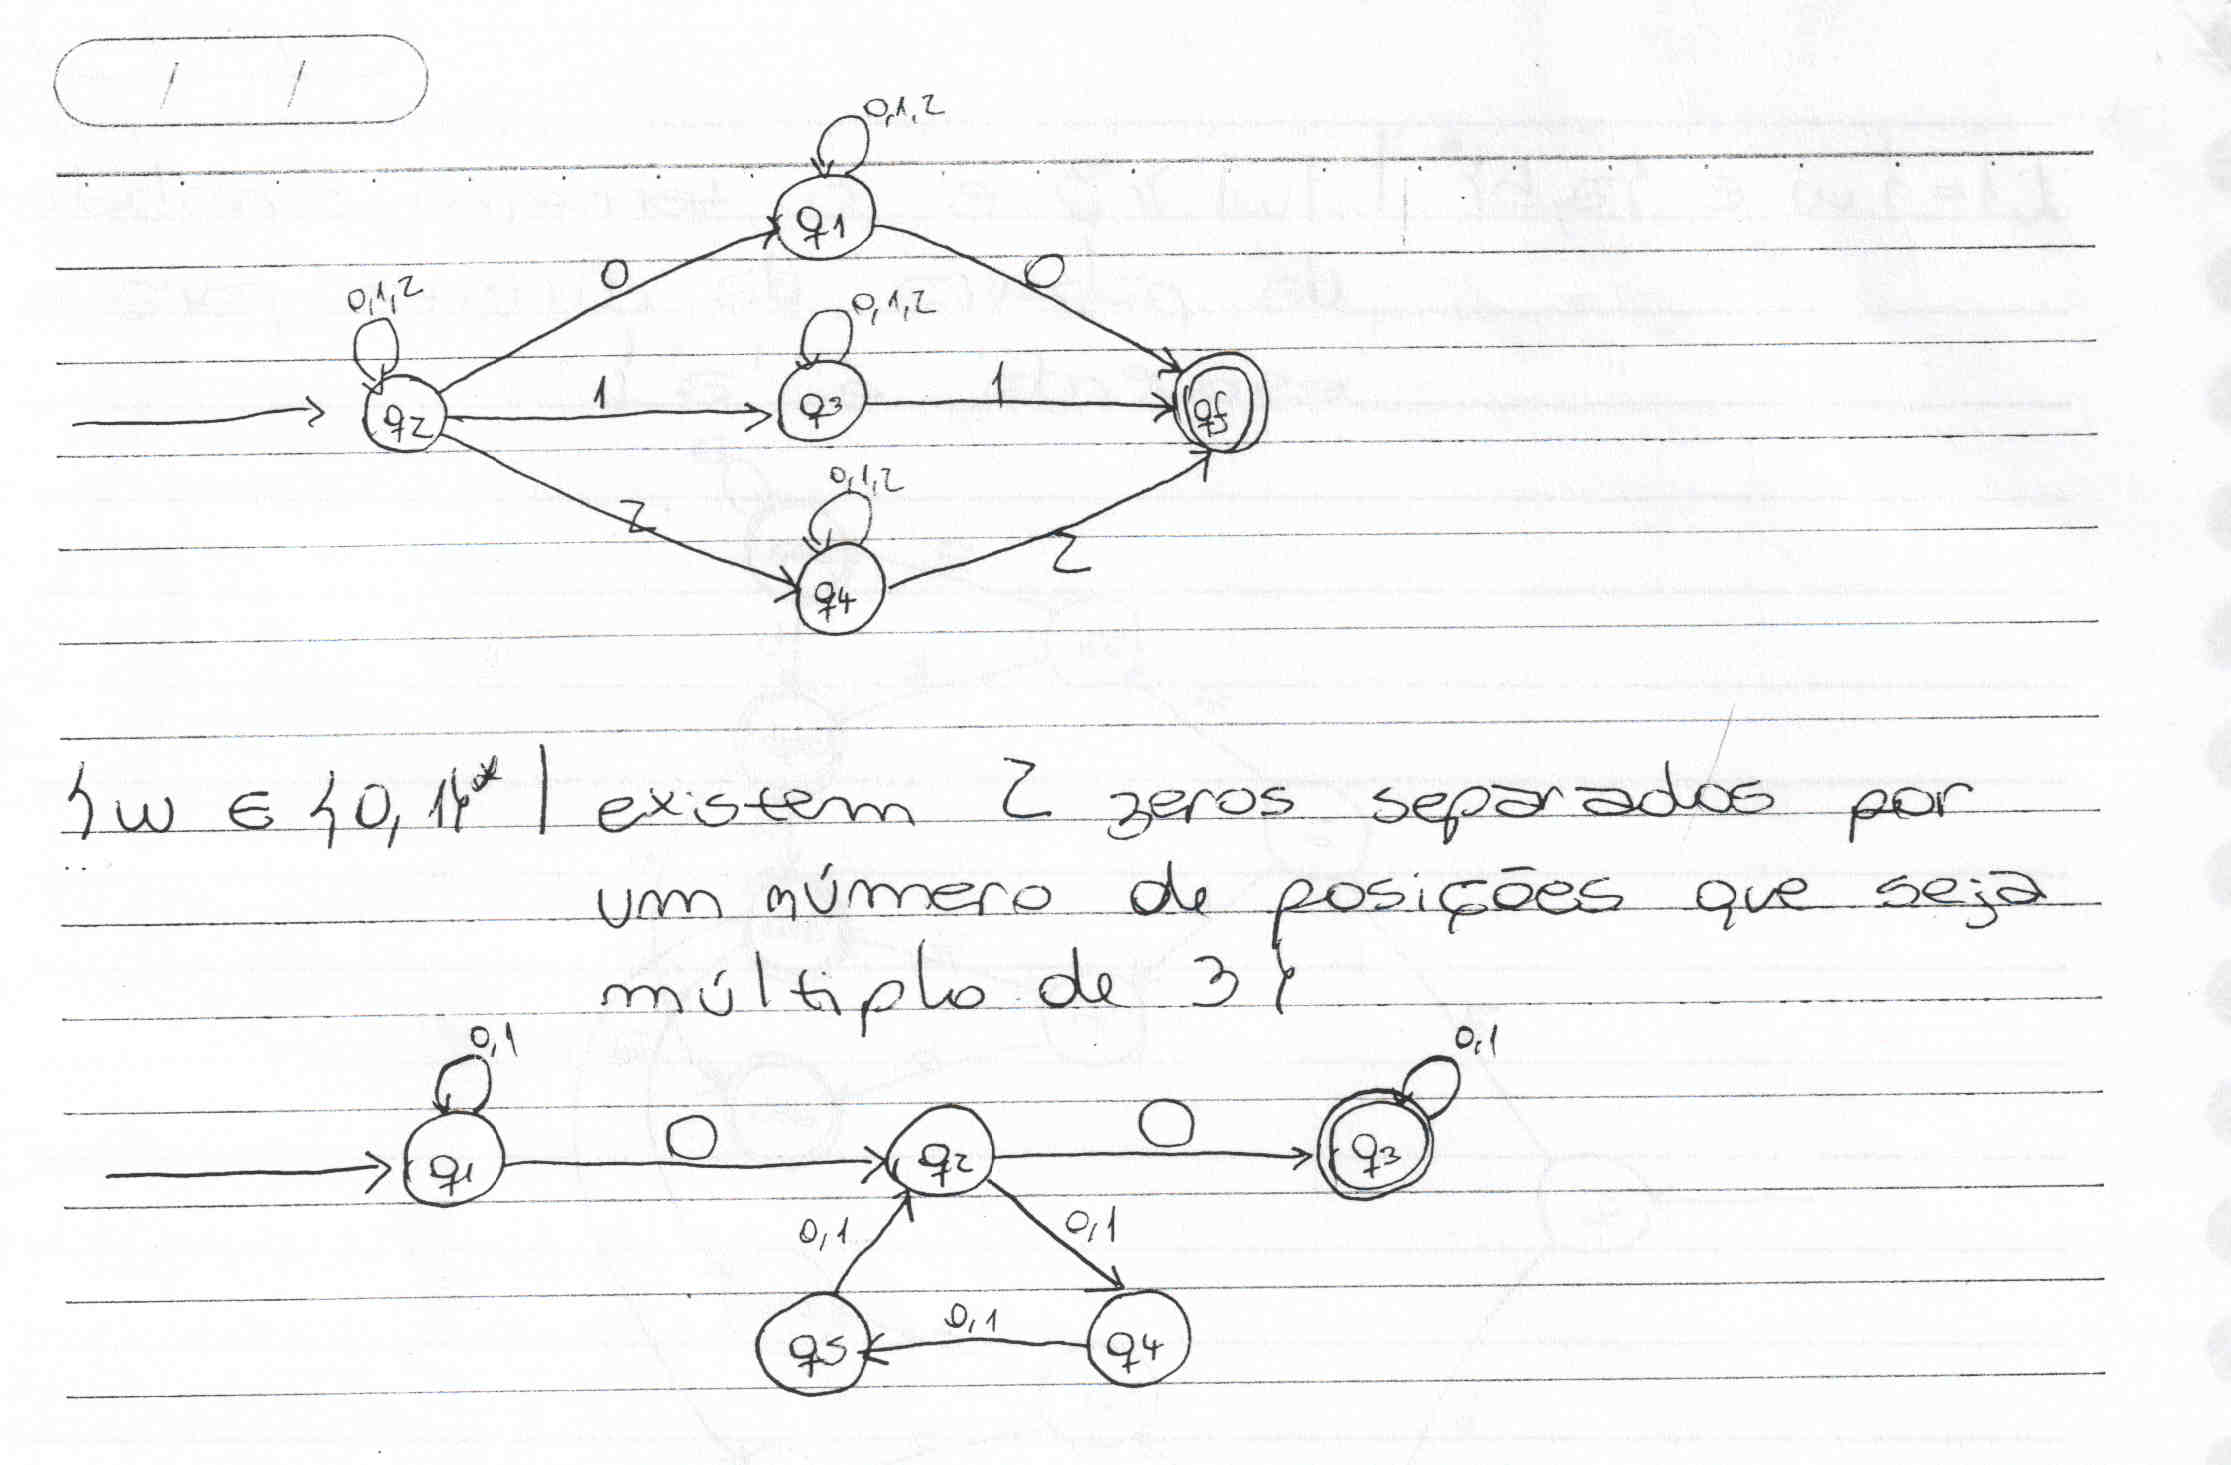 / /
0,1,2
q1
0 0
0,1,2 0,1,2
q2 1 q3 1 qf
0,1,2
2 2
q4
{w ∈ {0,1}* | existem 2 zeros separados por
um número de posições que seja
múltiplo de 3}
0,1 0,1
q1 0 q2 0 q3
0,1 0,1
q5 0,1 q4